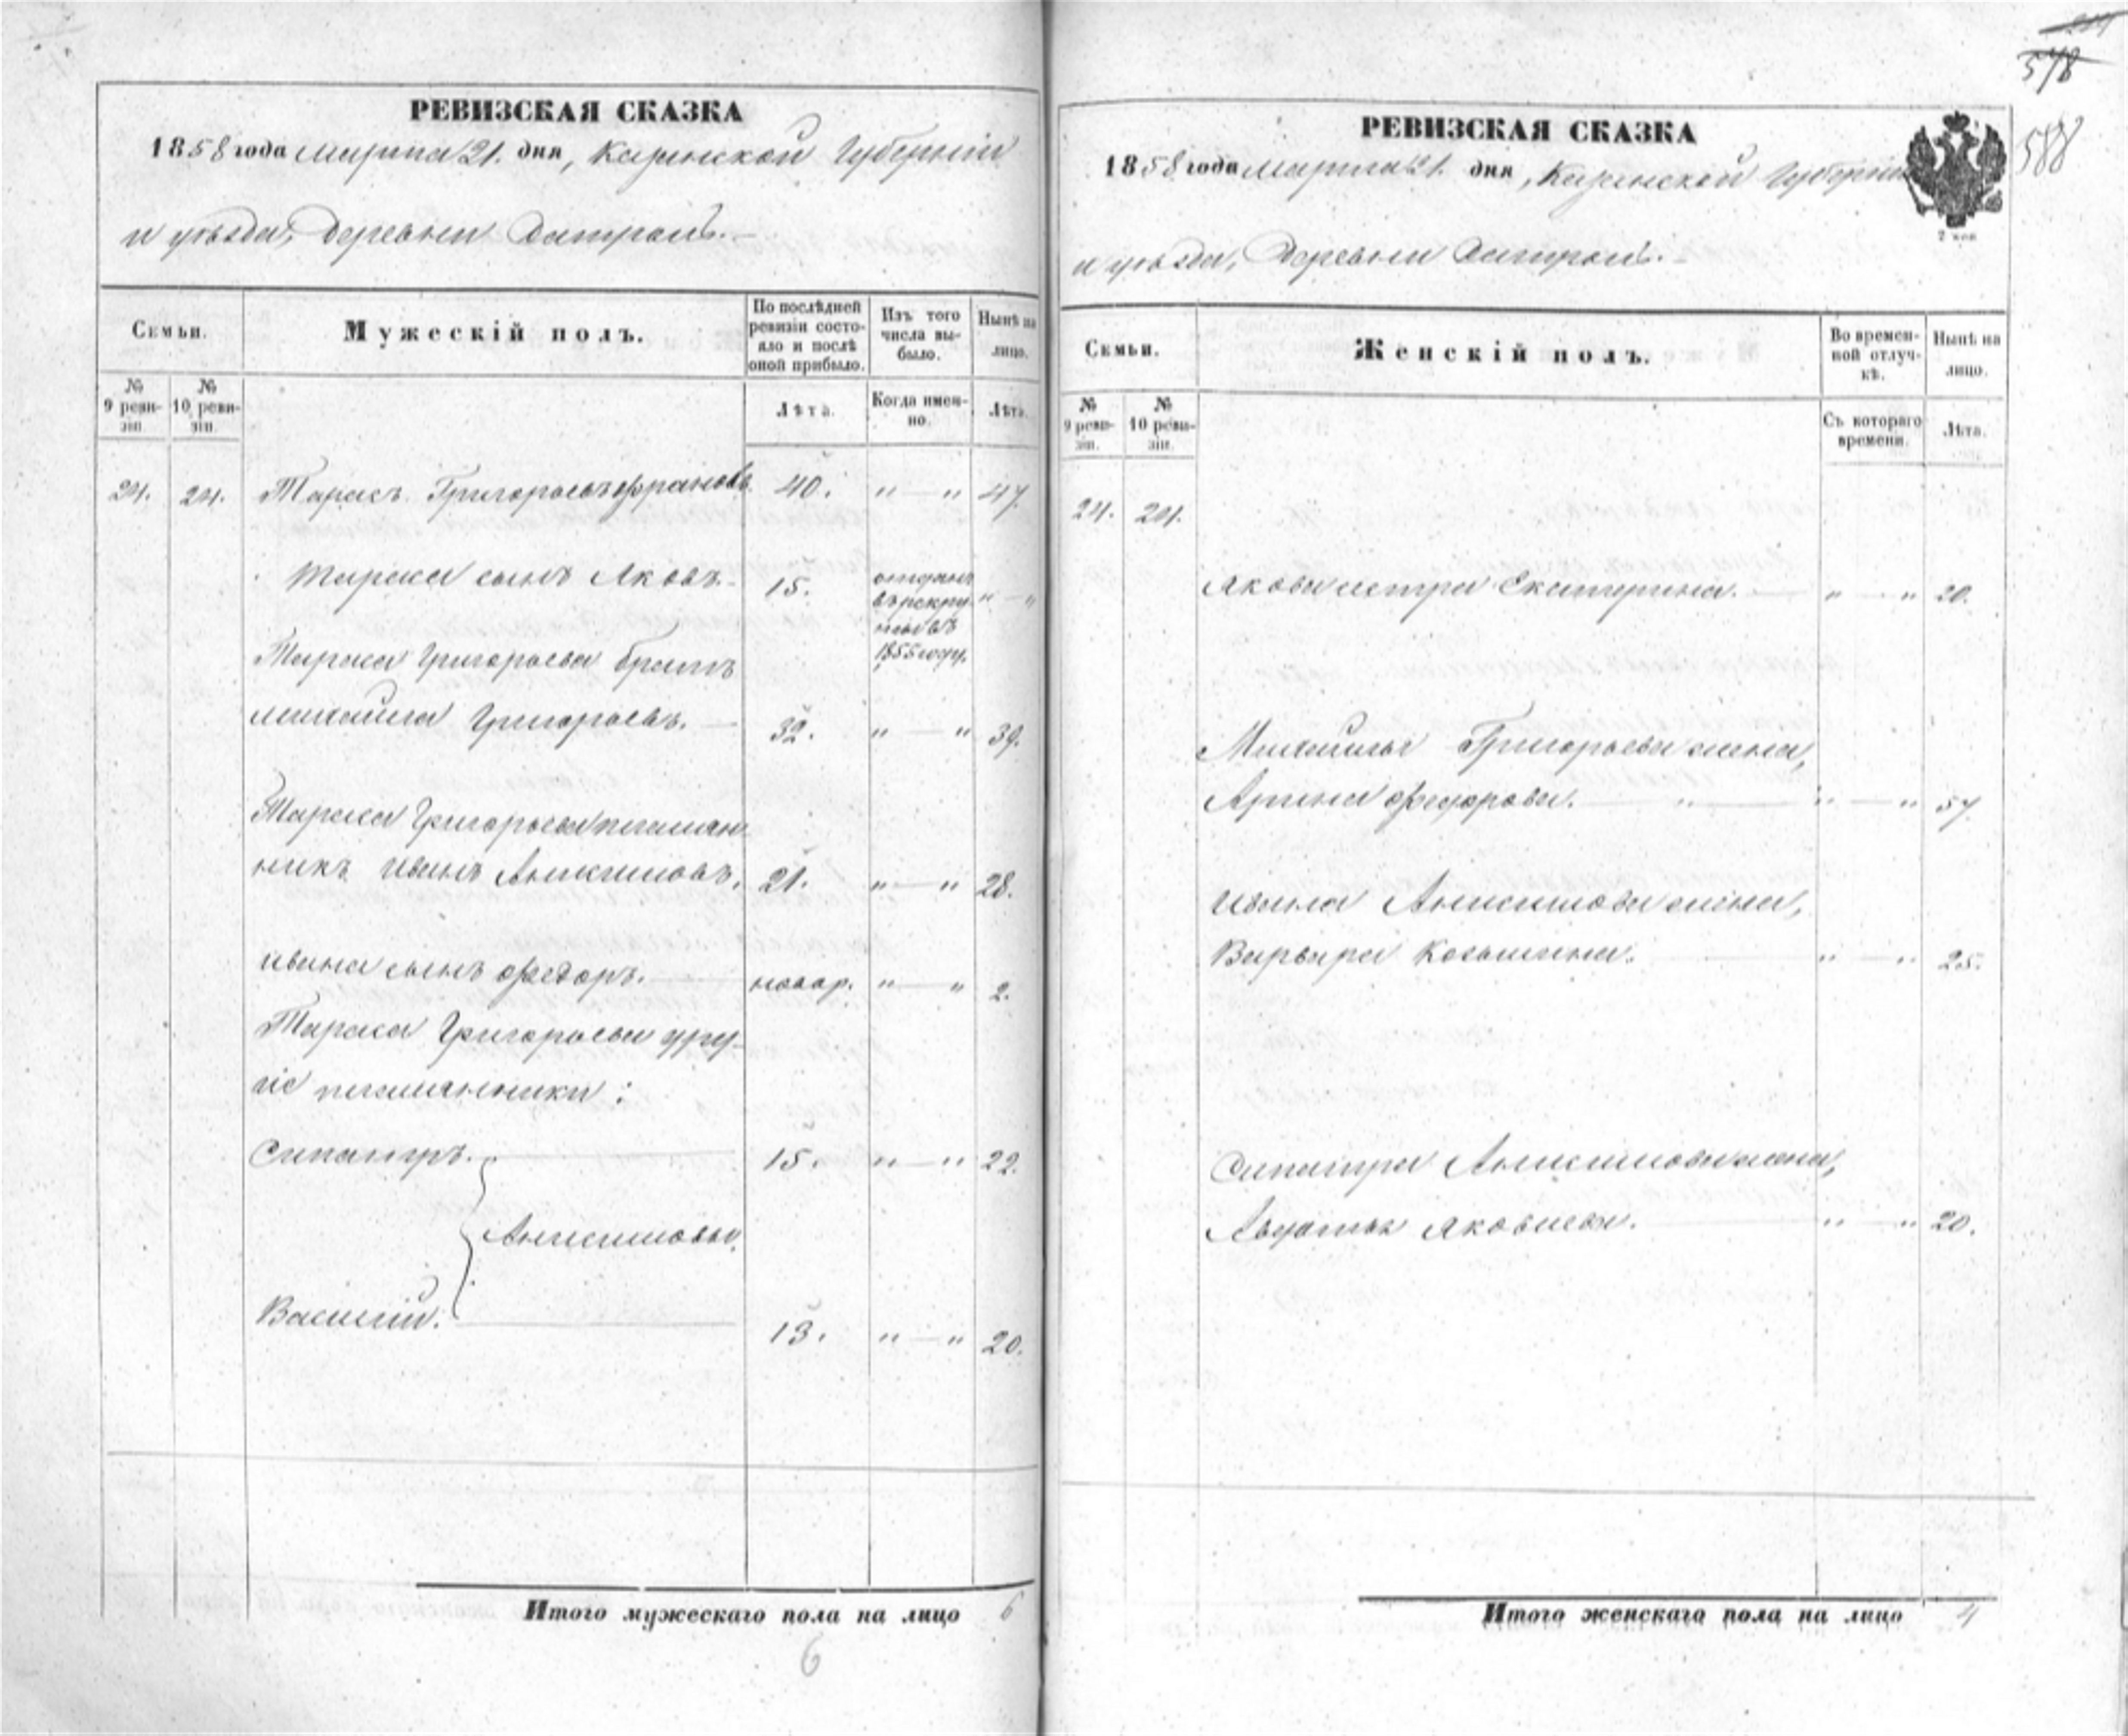 РЕВИЗСКАЯ СКАЗКА
1858 года Марта 21. дня, Казанской Губерніи
и уѣзда, деревни
Семьи.
Мужескій полъ.
По послѣдней ревизіи состояло и послѣ оной прибыло.
Изъ того числа выбыло.
Нынѣ на лицо.
№ 9 ревизіи.
№ 10 ревизіи.
Лѣта.
Когда именно.
Лѣта.
24. 24. Тарасъ Григорьевъ 40. " — " 47.
Тараса сынъ Яковъ. 15. отданъ въ рекруты въ 1855 году. " — "
Тараса Григорьева братъ
Михайла Григорьевъ. — 32. " — " 39.
Тараса Григорьева племян
никъ Иванъ Анисимовъ. 21. " — " 28.
Ивана сынъ Федоръ. — новор. " — " 2.
Тараса Григорьева дру-
гіе племянники:
Сипатръ. 15. " — " 22.
Анисимовы.
Василій. 13. " — " 20.
Итого мужескаго пола на лицо 6
6
578
588
РЕВИЗСКАЯ СКАЗКА
1858 года Марта 21. дня, Казанской Губерніи
и уѣзда, деревни
Семьи.
Женскій полъ.
Во временной отлучкѣ.
Нынѣ на лицо.
№ 9 ревизіи.
№ 10 ревизіи.
Съ котораго времени.
Лѣта.
24. 24.
Якова сестра Екатерина. — " — " 20.
Михайлы Григорьева жена,
Арина Федорова. — " — " — " 57.
Ивана Анисимова жена,
Варвара Козьмина. " — " 25.
Сипатра Анисимова жена,
Авдотья Яковлева. " — " 20.
Итого женскаго пола на лицо 4